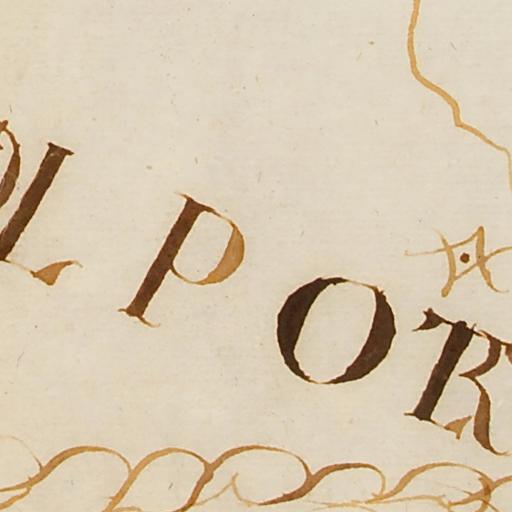 L POR